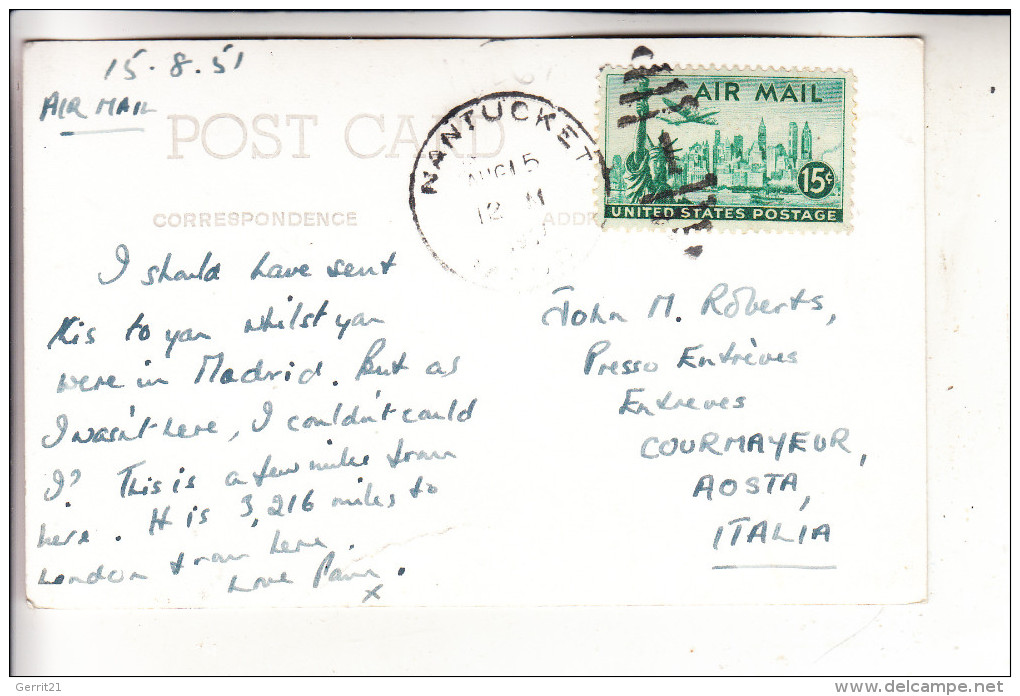 15.8.51
AIR MAIL
POST CARD
CORRESPONDENCE
ADDR
NANTUCKET
AUG 15
12 M
AIR MAIL
15¢
UNITED STATES POSTAGE
I should have sent
this to you whilst you
were in Madrid. But as
I wasn't here, I couldn't could
I? This is a few miles from
here. It is 3,216 miles to
London from here.
Love
x
John M. Roberts,
Presso Entrèves
Entreves
COURMAYEUR,
AOSTA,
ITALIA
Gerrit21
delcampe.net